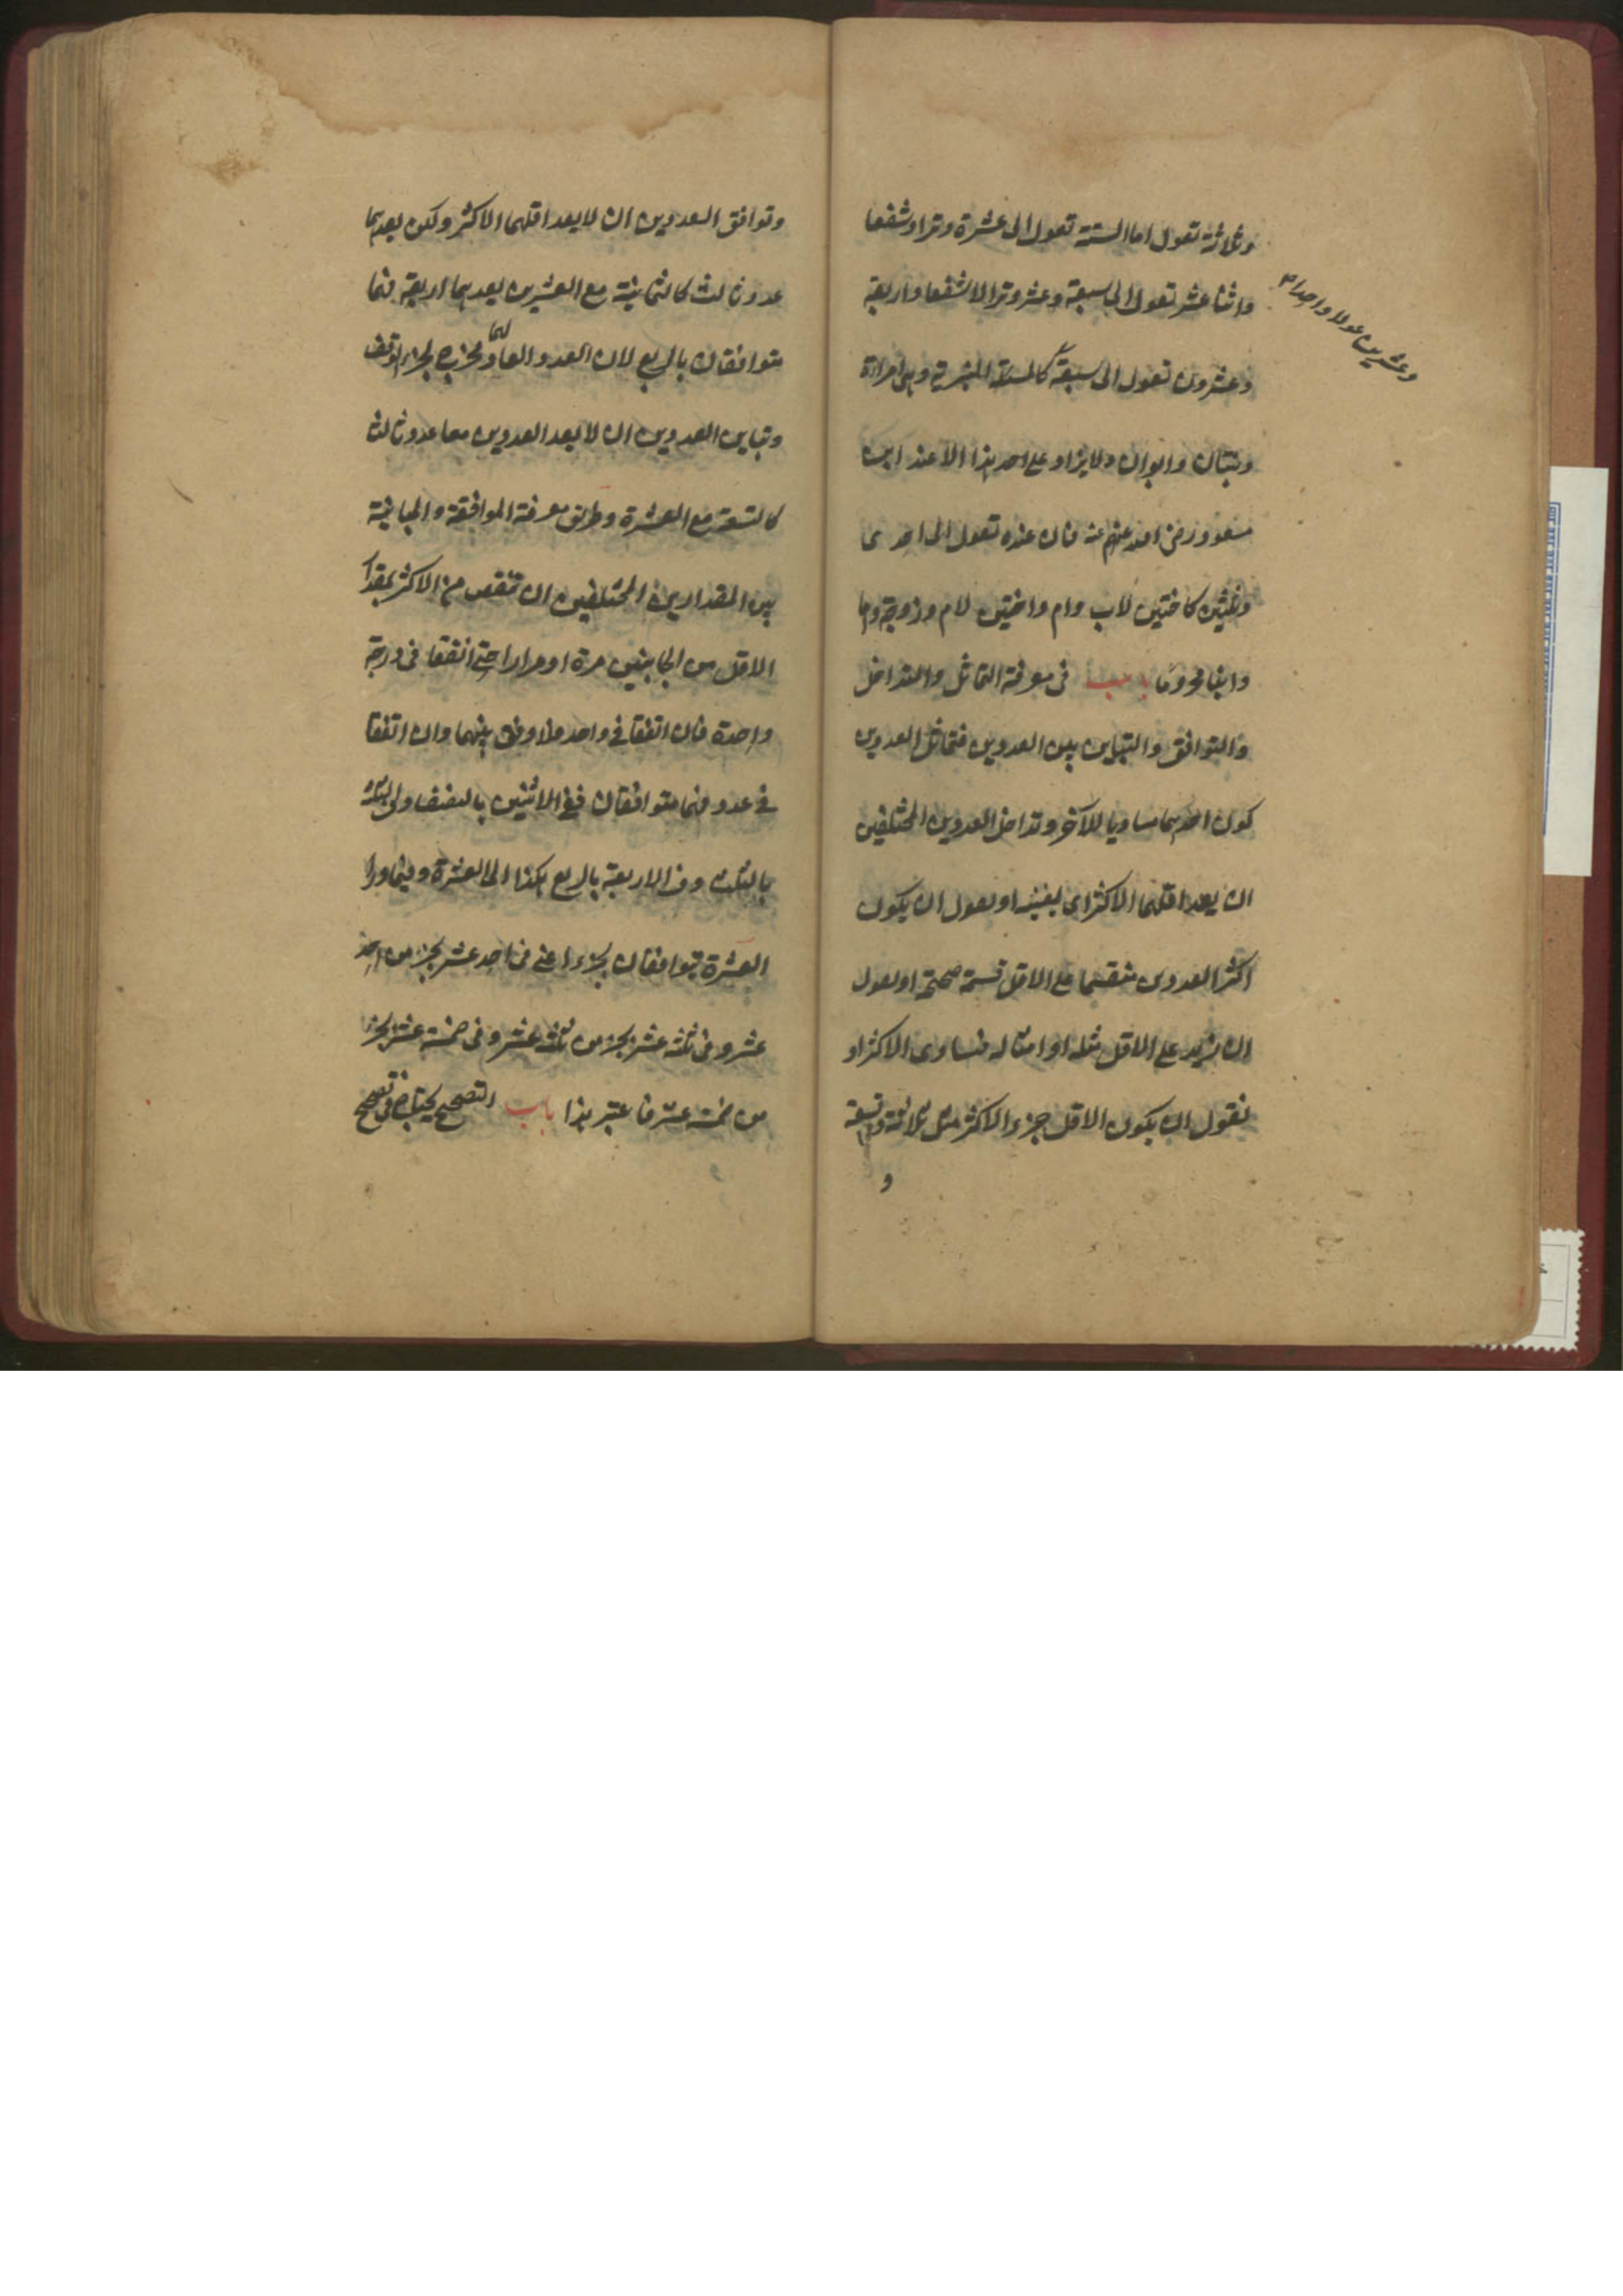 وثلاثة تعول اما الستة تعول الى عشرة وترا وشفعا
واثنا عشر تعول الى سبعة وعشر وترا لا شفعا واربعة
وعشرون تعول الى سبعة كالمسئلة المنبرية وهى امراة
وعشرين عولا واحدا
وبنتان وابوان ولا يزاد على هذا الا عند ابن
مسعود رضى الله عنه فان عنده تعول الى احدى
وثلثين كاختين لاب وام واختين لام وزوجة وام
وابنا محروما باب فى معرفة التماثل والتداخل
والتوافق والتباين بين العددين فتماثل العددين
كون احدهما مساويا للآخر وتداخل العددين المختلفين
ان يعد اقلهما الاكثر اى يفنيه او نقول ان يكون
اكثر العددين منقسما على الاقل قسمة صحيحة او نقول
ان يزيد على الاقل مثله او امثاله فيساوى الاكثر او
نقول ان يكون الاقل جزء الاكثر مثل ثلاثة وتسعة
و
وتوافق العددين ان لا يعد اقلهما الاكثر ولكن يعدهما
عدد ثالث كالثمانية مع العشرين يعدهما اربعة فهما
متوافقان بالربع لان العدد العاد لهما مخرج لجزء الوفق
وتباين العددين ان لا يعد العددين معا عدد ثالث
كالتسعة مع العشرة وطريق معرفة الموافقة والمباينة
بين المقدارين المختلفين ان تنقص من الاكثر بمقدار
الاقل من الجانبين مرة او مرارا حتى اتفقا فى درجة
واحدة فان اتفقا فى واحد فلا وفق بينهما وان اتفقا
فى عدد فهما متوافقان ففى الاثنين بالنصف وفى الثلثة
بالثلث وفى الاربعة بالربع هكذا الى العشرة وفيما وراء
العشرة يتوافقان بجزء اعنى فى احد عشر بجزء من احد
عشر وفى ثلثة عشر بجزء من ثلثة عشر وفى خمسة عشر بجزء
من خمسة عشر فاعتبر هذا باب التصحيح يحتاج فى تصحيح